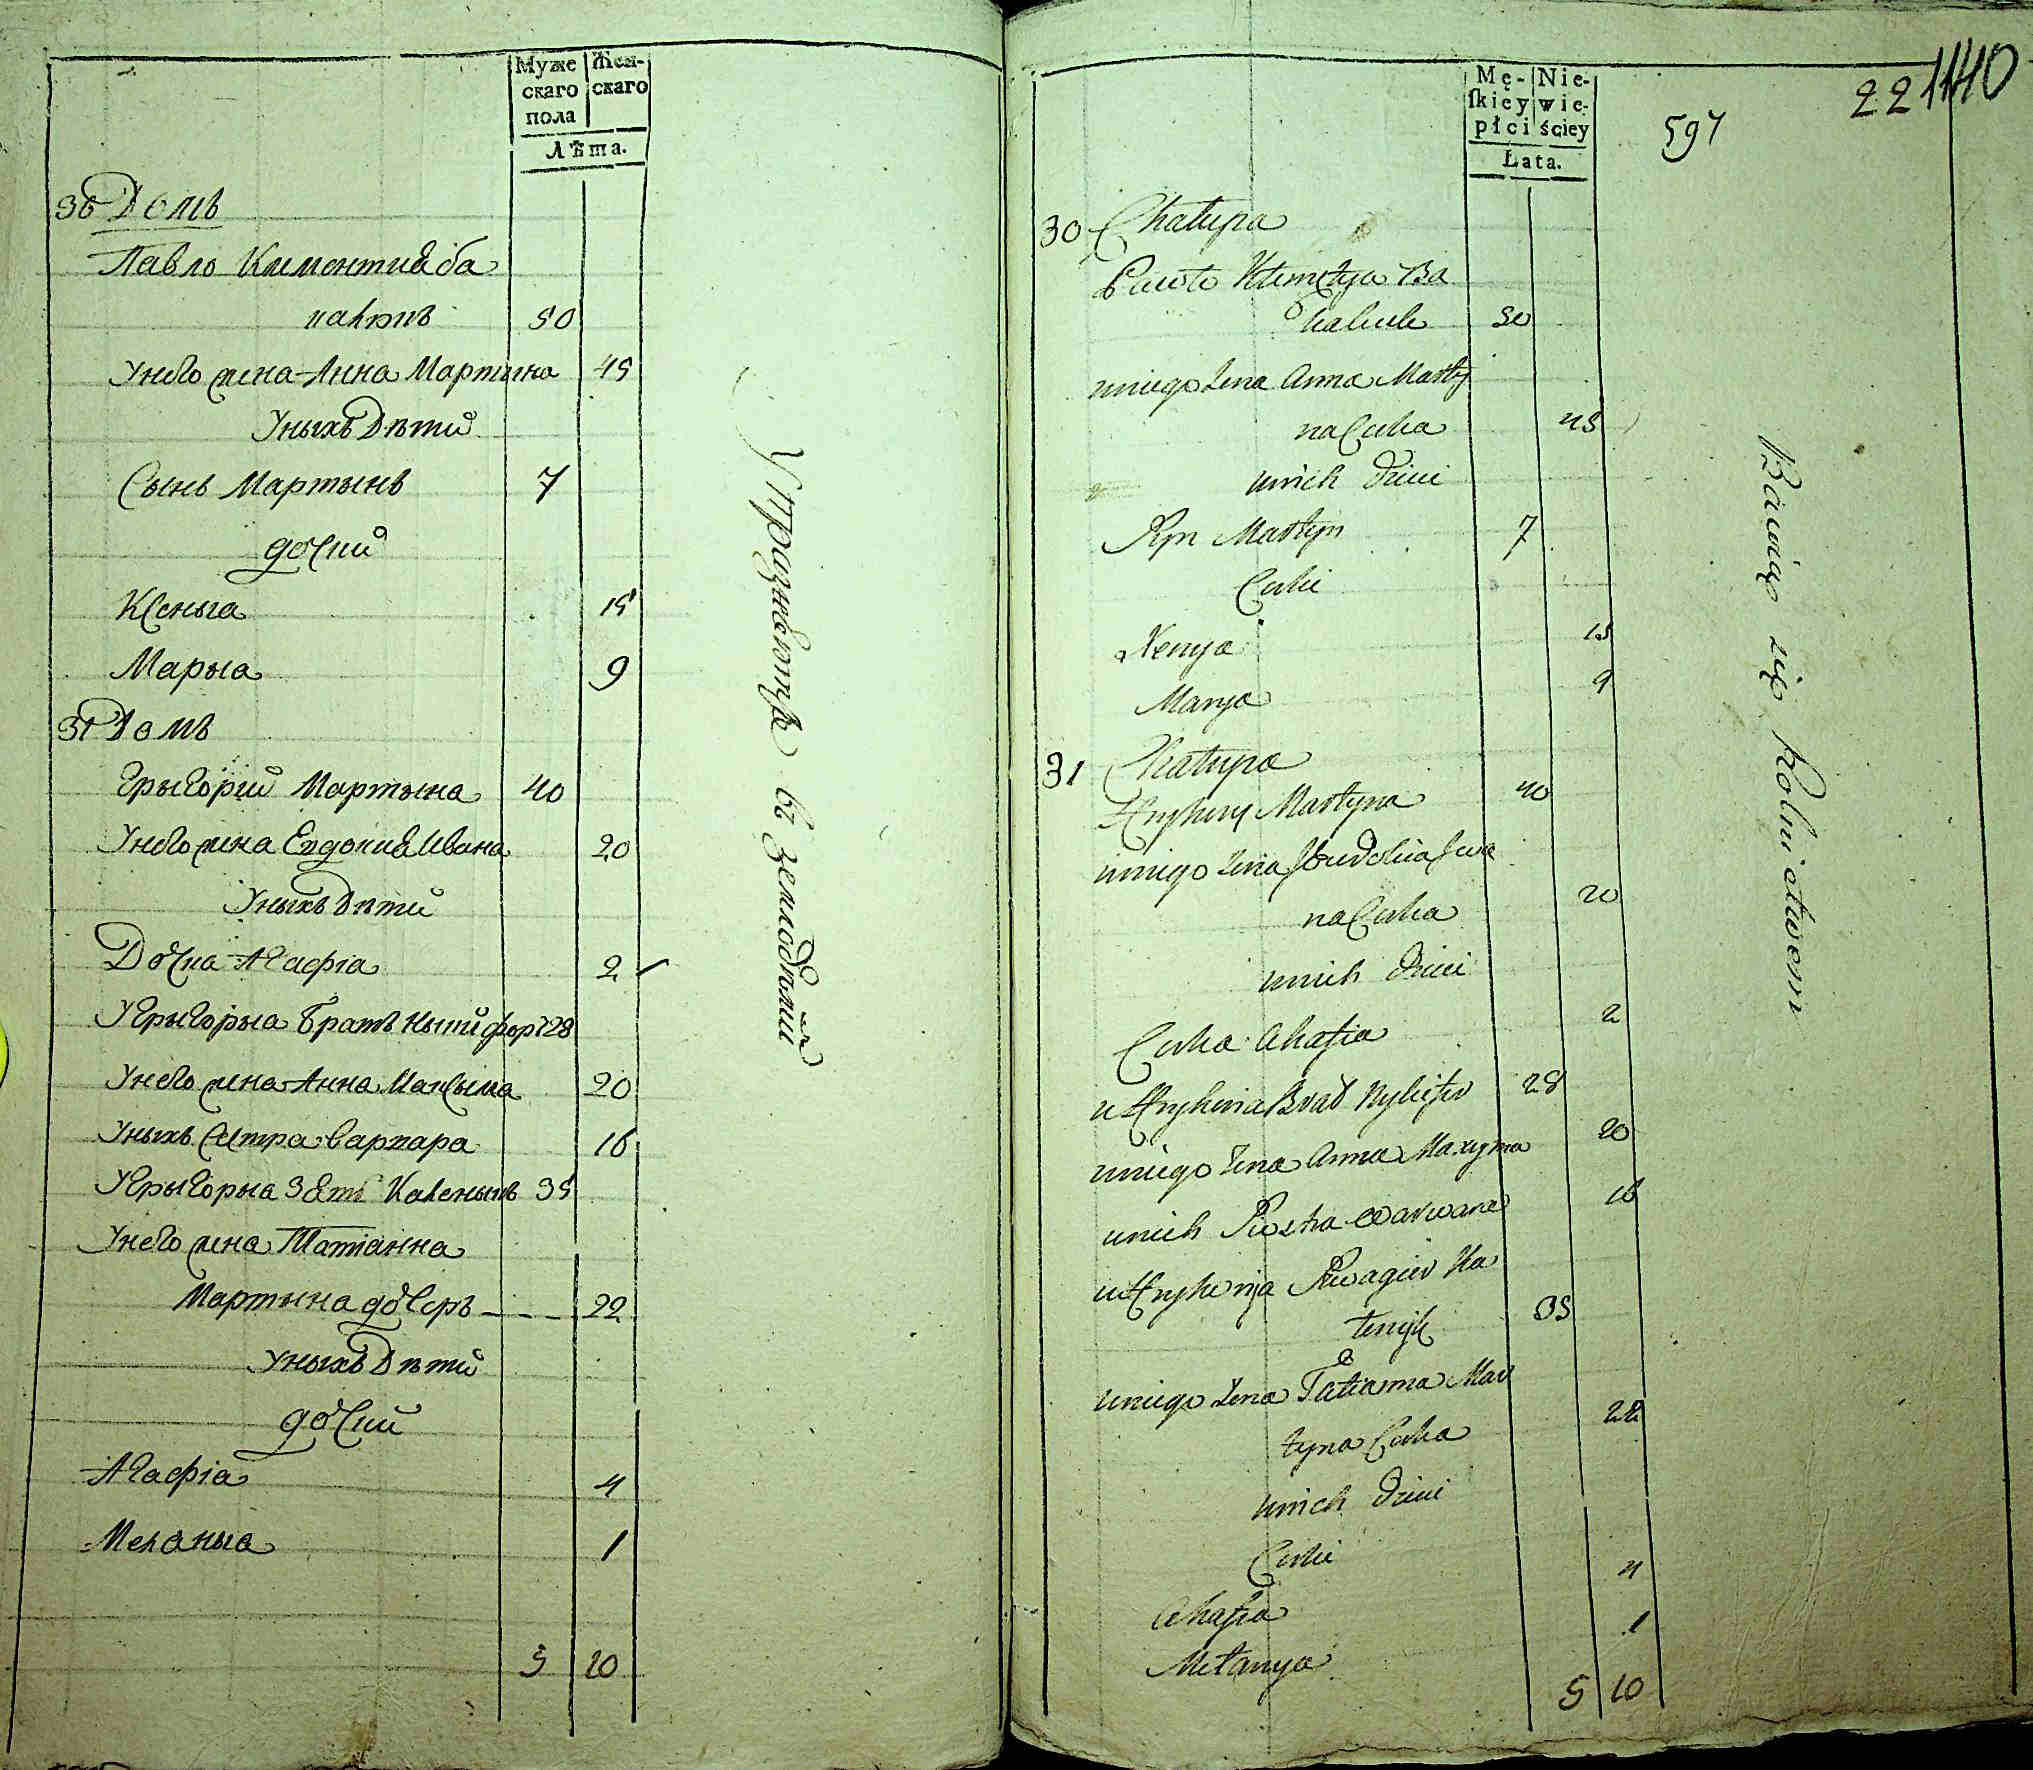 Муже
скаго
пола
Жен-
скаго
Лѣта.
30 Домъ
Павло Климентия ба
50
Унего жена Анна Мартина 45
Уныхъ Дѣти
Сынъ Мартынъ 7
дочки
Ксеныа 15
Марыа 9
31 Домъ
Грыгорий Мартына 40
Унего жена Евдокия Ивана 20
Уныхъ Дѣти
Дочка Агафіа 2
У Грыгорыа Братъ Никифоръ 28
Унего жена Анна Максыма 20
Уныхъ Сестра Варвара 16
У Грыгорыа Зять Каленыкъ 35
Унего жена Татіанна
Мартына дочеръ 22
Уныхъ Дѣти
дочки
Агафіа 4
Меланыа 1
5 10
Упражняются въ земледѣлии
22
1440
597
Mę-
skiey
płci
Nie-
wie-
ściey
Łata.
30 Chałupa
Pawło Klemętya Ba
50
uniego Żena Anna Marty
na Curka 45
unich Dzieci
Syn Martyn 7
Curki
Xenya 15
Marya 9
31 Chałupa
Hryhory Martyna 40
uniego Żena Jewdokia Iwa
na Curka 20
unich Dzieci
Curka Ahafia 2
u Hryhoria Brat Nykifor 28
uniego Żena Anna Maxyma 20
unich Siostra Warwara 16
u Hryhorya Szwagier Ka
lenyk 35
uniego Żena Tatianna Mar
tyna Curka 22
unich Dzieci
Curki
Ahafia 4
Mełanya 1
5 10
Bawiąc się Rolnictwem